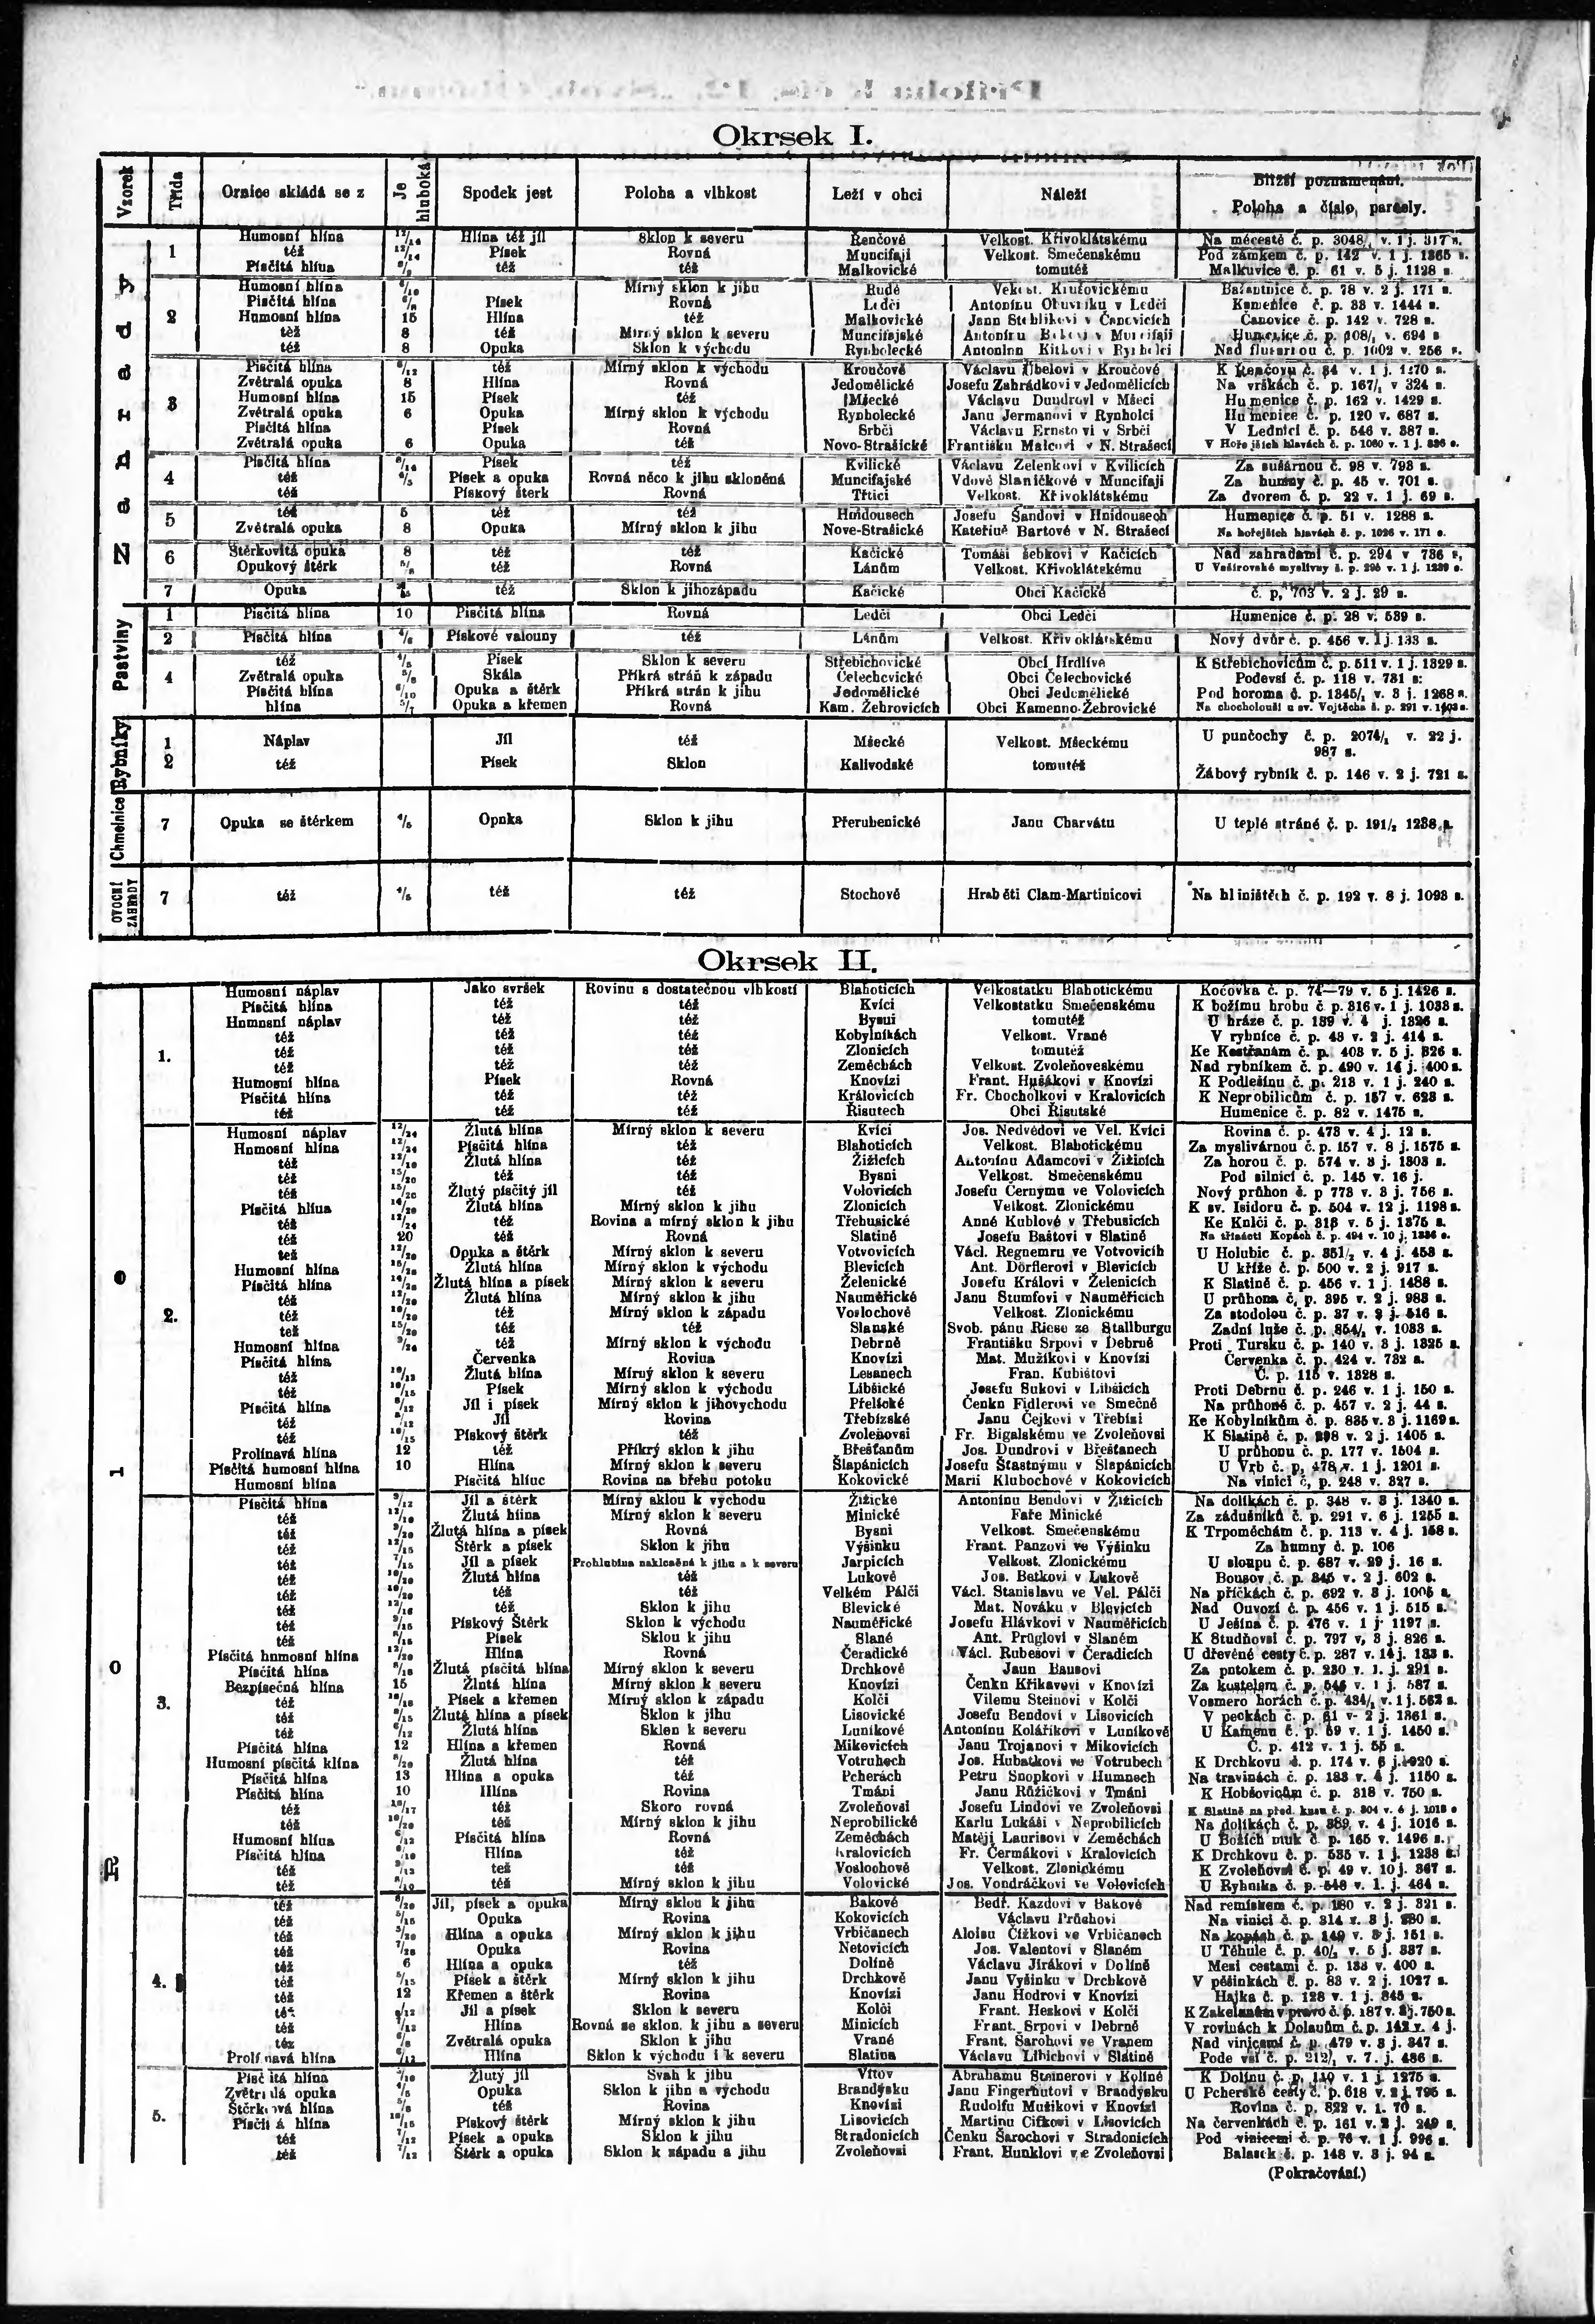 Okrsek I.
Vzorek Třída Ornice skládá se z Je hluboká Spodek jest Poloha a vlhkost Leží v obci Náleží Bližší poznamenání. Poloha a číslo parcely.
Zahrady
1 Humosní hlína 12/14 Hlína též jíl Sklon k severu Řenčově Velkost. Křivoklátskému Na městě č. p. 3048/1 v. 1 j. 317 s.
též 12/14 Písek Rovná Muncifaji Velkost. Smečenskému Pod zámkem č. p. 142 v. 1 j. 1365 s.
Písčitá hlína též též Malkovické tomutéž Malkuvice č. p. 61 v. 5 j. 1128 s.
2 Humosní hlína Mírný sklon k jihu Rudé Velkost. Krušovickému č. p. 78 v. 2 j. 171 s.
Písčitá hlína Písek Rovná Ledči Antonínu v Ledči Kamenice č. p. 33 v. 1444 s.
Humosní hlína 15 Hlína též Malkovické Janu v Čanovicích Čanovice č. p. 142 v. 728 s.
též 8 též Mírný sklon k severu Muncifajské Antonínu v Muncifaji Humenice č. p. v. 694 s
též 8 Opuka Sklon k východu Rynholecké Antonínu v Rynholci Nad č. p. 1002 v. 256 s.
3 Písčitá hlína 8/12 též Mírný sklon k východu Kroučově Václavu v Kroučové K Řenčovu č. 84 v. 1 j. 1170 s.
Zvětralá opuka 8 Hlína Rovná Jedomělické Josefu Zahrádkovi v Jedomělicích Na vrškách č. p. 167/1 v 324 s.
Humosní hlína 15 Písek též Mšecké Václavu Dundrovi v Mšeci Humenice č. p. 162 v. 1429 s.
Zvětralá opuka 6 Opuka Mírný sklon k východu Rynholecké Janu Jermanovi v Rynholci Humenice č. p. 120 v. 687 s.
Písčitá hlína Písek Rovná Srbči Václavu Ernstovi v Srbči V Lednici č. p. 546 v. 387 s.
Zvětralá opuka 6 Opuka též Novo-Strašické Františku Malcovi v N. Strašecí V Hořejších hlavách č. p. 1060 v. 1 j. 886 s.
4 Písčitá hlína Písek též Kvilické Václavu Zelenkovi v Kvilicích Za sušárnou č. 98 v. 793 s.
též Písek a opuka Rovná něco k jihu skloněná Muncifajské Vdově Slaničkové v Muncifaji Za humny č. p. 45 v. 701 s.
též Pískový šterk Rovná Třtici Velkost. Křivoklátskému Za dvorem č. p. 22 v. 1 j. 69 s.
5 též 5 též též Hnidousech Josefu Šandovi v Hnidousech Humenice č. p. 51 v. 1288 s.
Zvětralá opuka 8 Opuka Mírný sklon k jihu Nove-Strašické Kateřině Bartové v N. Strašecí Na hořejších hlavách č. p. 1026 v. 171 s.
6 Štěrkovitá opuka 8 též též Kačické Tomáši Šebkovi v Kačicích Nad zahradami č. p. 294 v 736 s.
Opukový štěrk též Rovná Lánům Velkost. Křivoklátskému U Vašírovské myslivny č. p. 295 v. 1 j. 1239 s.
7 Opuka též Sklon k jihozápadu Kačické Obci Kačické č. p. 703 v. 2 j. 29 s.
Pastviny
1 Písčitá hlína 10 Písčitá hlína Rovná Ledči Obci Ledči Humenice č. p. 28 v. 539 s.
2 Písčitá hlína 4/6 Pískové valouny též Lánům Velkost. Křivoklátskému Nový dvůr č. p. 456 v. 1 j. 133 s.
4 též 4/5 Písek Sklon k severu Střebichovické Obci Hrdlívé K Střebichovicům č. p. 511 v. 1 j. 1329 s.
Zvětralá opuka Skála Příkrá stráň k západu Čelechovické Obci Čelechovické Podevsí č. p. 118 v. 731 s:
Písčitá hlína 6/10 Opuka a štěrk Příkrá strán k jihu Jedomělické Obci Jedomělické Pod horoma č. p. 1345/1 v. 3 j. 1268 s.
hlína 5/7 Opuka a křemen Rovná Kam. Žebrovicích Obci Kamenno-Žebrovické Na chocholouši u sv. Vojtěcha č. p. 291 v. 1403 s.
Rybníky
1 Náplav Jíl též Mšecké Velkost. Mšeckému U punčochy č. p. 2074/1 v. 22 j. 987 s.
2 též Písek Sklon Kalivodské tomutéž Žábový rybník č. p. 146 v. 2 j. 721 s.
Chmelnice
7 Opuka se štěrkem 4/5 Opnka Sklon k jihu Přerubenické Janu Charvátu U teplé stráně č. p. 191/2 1238 s.
OVOCNÍ ZAHRADY
7 též 4/5 též též Stochově Hraběti Clam-Martinicovi Na hliništěch č. p. 192 v. 8 j. 1093 s.
Okrsek II.
Role
1. Humosní náplav Jako svršek Rovinu s dostatečnou vlhkostí Blahoticích Velkostatku Blahotickému Kočovka č. p. 74—79 v. 5 j. 1426 s.
Písčitá hlína též též Kvíci Velkostatku Smečenskému K božímu hrobu č p. 316 v. 1 j. 1033 s.
Hnmosní náplav též též Bysui tomutéž U hráze č. p. 139 v. 4 j. 1326 s.
též též též Kobylníkách Velkost. Vrané V rybnice č. p. 43 v. 2 j. 414 s.
též též též Zlonicích tomutéž Ke Kestřanám č. p. 403 v. 5 j. 326 s.
též též též Zeměchách Velkost. Zvoleňoveskému Nad rybníkem č. p. 490 v. 14 j. 400 s.
Humosní hlína Písek Rovná Knovízi Frant. Hušákovi v Knovízi K Podlešínu č. p. 213 v. 1 j. 240 s.
Písčitá hlína též též Královicích Fr. Chocholkovi v Kralovicích K Neprobilicům č. p. 157 v. 623 s.
též též též Řisutech Obci Řisutské Humenice č. p. 82 v. 1475 s.
2. Humosní náplav 12/24 Žlutá hlína Mírný sklon k severu Kvíci Jos. Nedvědovi ve Vel. Kvíci Rovina č. p. 473 v. 4 j. 12 s.
Hnmosní hlína 12/24 Písčitá hlína též Blahoticích Velkost. Blahotickému Za myslivárnou č. p. 157 v. 8 j. 1575 s.
též Žlutá hlína též Žižicích Antonínu Adamcovi v Žižicích Za horou č. p. 574 v. 3 j. 1303 s.
též 15/20 též též Bysni Velkost. Smečenskému Pod silnicí č. p. 145 v. 16 j.
též 15/20 Žlutý písčitý jíl též Volovicích Josefu Černýmu ve Volovicích Nový průhon č. p 773 v. 3 j. 756 s.
Písčitá hlína 14/20 Žlutá hlína Mírný sklon k jihu Zlonicích Velkost. Zlonickému K sv. Isidoru č. p. 504 v. 12 j. 1198 s.
též 12/24 též Rovina a mírný sklon k jihu Třebusické Anně Kublové v Třebusicích Ke Knlči č. p. 313 v. 5 j. 1375 s.
též 20 též Rovná Slatině Josefu Baštovi v Slatině Na třinácti Kopách č. p. 494 v. 10 j. 1336 s.
též 12/20 Opuka a štěrk Mírný sklon k severu Votvovicích Václ. Regnemru ve Votvovicíh U Holubic č. p. 351/2 v. 4 j. 453 s.
Humosní hlína Žlutá hlína Mírný sklon k východu Blevicích Ant. Dörflerovi v Blevicích U kříže č. p. 500 v. 2 j. 917 s.
Písčitá hlína 14/20 Žlutá hlína a písek Mírný sklon k severu Želenické Josefu Královi v Želenicích K Slatině č. p. 456 v. 1 j. 1488 s.
též 12/20 Žlutá hlína Mírný sklon k jihu Nauměřické Janu Stumfovi v Nauměřicích U průhona č. p. 395 v. 2 j. 983 s.
též též Mírný sklon k západu Voslochově Velkost. Zlonickému Za stodolou č. p. 37 v. 2 j. 516 s.
též 15/20 též též Slanské Svob. pánu Riese ze Stallburgu Zadní luže č. p. 854/1 v. 1033 s.
Humosní hlína 9/24 též Mírný sklon k východu Debrně Františku Srpovi v Debrně Proti Tursku č. p. 140 v. 3 j. 1325 s.
Písčitá hlína Červenka Rovina Knovízi Mat. Mužíkovi v Knovízi Červenka č. p. 424 v. 732 s.
též 10/12 Žlutá hlína Mírný sklon k severu Lesanech Fran. Kubištovi Č. p. 115 v. 1328 s.
též 10/15 Písek Mírný sklon k východu Libšické Josefu Sukovi v Libšicích Proti Debrnu č. p. 246 v. 1 j. 150 s.
Písčitá hlína 8/12 Jíl i písek Mírný sklon k jihovychodu Přelické Čenkn Fidlerovi ve Smečně Na průhoně č. p. 457 v. 2 j. 44 s.
též Jíl Rovina Třebízské Janu Čejkovi v Třebísi Ke Kobylníkům č. p. 835 v. 3 j. 1169 s.
též 10/15 Pískový štěrk též Zvoleňovsi Fr. Bigalskému ve Zvoleňovsi K Slatině č. p. 298 v. 2 j. 1405 s.
Prolínavá hlína 12 též Příkrý sklon k jihu Břešťanům Jos. Dundrovi v Břeštanech U průhonu č. p. 177 v. 1504 s.
Písčitá humosní hlína 10 Hlína Mírný sklon k severu Šlapánicích Josefu Šťastnýmu v Šlapánicích U Vrb č. p. 478 v. 1 j. 1201 s.
Humosní hlína Písčitá hlíuc Rovina na břehu potoku Kokovické Marii Klubochové v Kokovicích Na vinici č. p. 248 v. 327 s.
3. Písčitá hlína 9/12 Jíl a štěrk Mírný sklou k východu Žižické Antonínu Bendovi v Žižicích Na dolíkách č. p. 348 v. 3 j. 1340 s.
též Žlutá hlína Mírný sklon k severu Minické Faře Minické Za zádušníků č. p. 291 v. 6 j. 1255 s.
též 9/20 Žlutá hlína a písek Rovná Bysni Velkost. Smečenskému K Trpoměchám č. p. 113 v. 4 j. 158 s.
též 12/15 Štěrk a písek Sklon k jihu Výšinku Frant. Panzovi ve Výšinku Za humny č. p. 106
též 7/15 Jíl a písek Prohlubina nakloněná k jihu a k severu Jarpicích Velkost. Zlonickému U sloupu č. p. 687 v. 29 j. 16 s.
též Žlutá hlína též Lukově Jos. Betkovi v Lukově Bousov č. p. 345 v. 2 j. 602 s.
též též též Velkém Pálči Václ. Stanislavu ve Vel. Pálči Na příčkách č. p. 692 v. 3 j. 1005 s.
též 12/16 též Sklon k jihu Blevické Mat. Nováku v Blevicích Nad Ouvozí č. p. 456 v. 1 j. 515 s.
též 9/15 Pískový Štěrk Sklon k východu Nauměřické Josefu Hlávkovi v Nauměřicích U Ješína č. p. 476 v. 1 j. 1197 s.
též Písek Sklou k jihu Slané Ant. Průglovi v Slaném K Studňovsi č. p. 797 v, 3 j. 826 s.
Písčitá hnmosní hlína 12/20 Hlína Rovná Čeradické Václ. Rubešovi v Čeradicích U dřevěné cesty č. p. 287 v. 14 j. 183 s.
Písčitá hlína Žlutá písčitá hlína Mírný sklon k severu Drchkově Jaun Bausovi Za potokem č. p. 230 v. 1. j. 291 s.
Bezpísečná hlína 15 Žlntá hlína Mírný sklon k severu Knovízi Čenkn Křikavovi v Knovízi Za kostelem č. p. 546 v. 1 j. 587 s.
též Písek a křemen Mírný sklon k západu Kolči Vilemu Steinovi v Kolči Vosmero horách č. p. 434/1 v. 1 j. 562 s.
též 8/15 Žlutá hlína a písek Sklon k jihu Lisovické Josefu Bendovi v Lisovicích V peckách č. p. 81 v- 2 j. 1361 s.
též 6/12 Žlutá hlína Sklen k severu Luníkové Antonínu Kolaříkovi v Luníkově U Kamenu č. p. 59 v. 1 j. 1450 s.
Písčitá hlína 12 Hlína a křemen Rovná Mikovicích Janu Trojanovi v Mikovicích Č. p. 412 v. 1 j. 55 s.
Humosní písčitá klína Žlutá hlína též Votrubech Jos. Hubatkovi ve Votrubech K Drchkovu č. p. 174 v. 6 j. 920 s.
Písčitá hlína 13 Hlína a opuka též Pcherách Petru Snopkovi v Humnech Na travinách č. p. 183 v. 4 j. 1150 s.
Písčitá hlína 10 Hlína Rovina Tmáni Janu Růžičkovi v Tmáni K Hobšovicům č. p. 318 v. 750 s.
též 10/17 též Skoro rovná Zvoleňovsi Josefu Lindovi ve Zvoleňovsi K Slatině na před. kusu č. p. 304 v. 6 j. 1018 s
též též Mírný sklon k jihu Neprobilické Karlu Lukáši v Neprobilicích Na dolíkách č. p. 389 v. 4 j. 1016 s.
Humosní hlíua 6/12 Písčitá hlína Rovná Zeměchách Matěji Laurisovi v Zeměchách U Božích muk č. p. 165 v. 1496 s.
Písčitá hlína Hlína též Kralovicích Fr. Čermákovi v Kralovicích K Drchkovu č. p. 535 v. 1 j. 1238 s.
též 9/12 tež též Vosloohově Velkost. Zlonickému K Zvoleňovsi č. p. 49 v. 10 j. 367 s.
též též Mírný sklon k jihu Volovické Jos. Vondráčkovi ve Volovicích U Rybnika č. p. 548 v. 1. j. 464 s.
4. též 8/20 Jíl, písek a opuka Mírný sklou k jihu Bakově Bedř. Kazdovi v Bakově Nad remískem č. p. 180 v. 2 j. 321 s.
též 5/15 Opuka Rovina Kokovicích Václavu Průchovi Na vinici č. p. 314 v. 3 j. 280 s.
též Hlína a opuka Mírný sklon k jihu Vrbičanech Aloisu Čížkovi ve Vrbičanech Na kopách č. p. 149 v. 3 j. 151 s.
též Opuka Rovina Netovicích Jos. Valentovi v Slaném U Těhule č. p. 40/1 v. 5 j. 337 s.
též 6 Hlína a opuka též Dolíně Václavu Jirákovi v Dolíně Mesi cestami č. p. 133 v. 400 s.
též 5/15 Písek a štěrk Mírný sklon k jihu Drchkově Janu Vyšinku v Drchkově V pěšinkách č. p. 83 v. 2 j. 1027 s.
též 12 Křemen a štěrk Rovina Knovízi Janu Hodrovi v Knovízi Hajka č. p. 128 v. 1 j. 845 s.
též 8/12 Jíl a písek Sklon k severu Kolči Frant. Heskovi v Kolči K Zakolanům v pravo č. p. 187 v. 2 j. 750 s.
též 7/12 Hlína Rovná se sklon. k jihu a severu Minicích Frant. Srpovi v Debrně V rovinách k Dolanům č. p. 142 v. 4 j.
též 6/8 Zvětralá opuka Sklon k jihu Vrané Frant. Šarohovi ve Vranem Nad vinicemi č. p. 479 v. 3 j. 347 s.
Prolínavá hlína 6/12 Hlína Sklon k východu i k severu Slatina Václavu Libichovi v Slatině Pode vsí č. p. 212/1 v. 7. j. 486 s.
5. Písčitá hlína Žlutý jíl Svah k jihu Vítov Abrahamu Steinerovi v Kolíně K Dolínu č. p. 110 v. 1 j. 1275 s.
Zvětralá opuka Opuka Sklon k jihn a východu Brandýsku Janu Fingerhutovi v Brandýsku U Pcherské cesty č. p. 618 v. 2 j. 795 s.
Štěrková hlína 5/8 též Rovina Knovízi Rudolfu Mužíkovi v Knovízi Rovina č. p. 822 v. 1. 70 s.
Písčitá hlína 10/15 Pískový štěrk Mírný sklon k jihu Lisovicích Martinu Cífkovi v Lisovicích Na červenkách č. p. 161 v. 2 j. 249 s.
též 7/12 Písek a opuka Sklon k jihu Stradonicích Čenku Šarochovi v Stradonicích Pod vinicemi č. p. 76 v. 1 j. 996 s.
též 7/12 Štěrk a opuka Sklon k západu a jihu Zvoleňovsi Frant. Hunklovi ve Zvoleňovsi Balasek č. p. 148 v. 3 j. 94 s.
(Pokračování.)